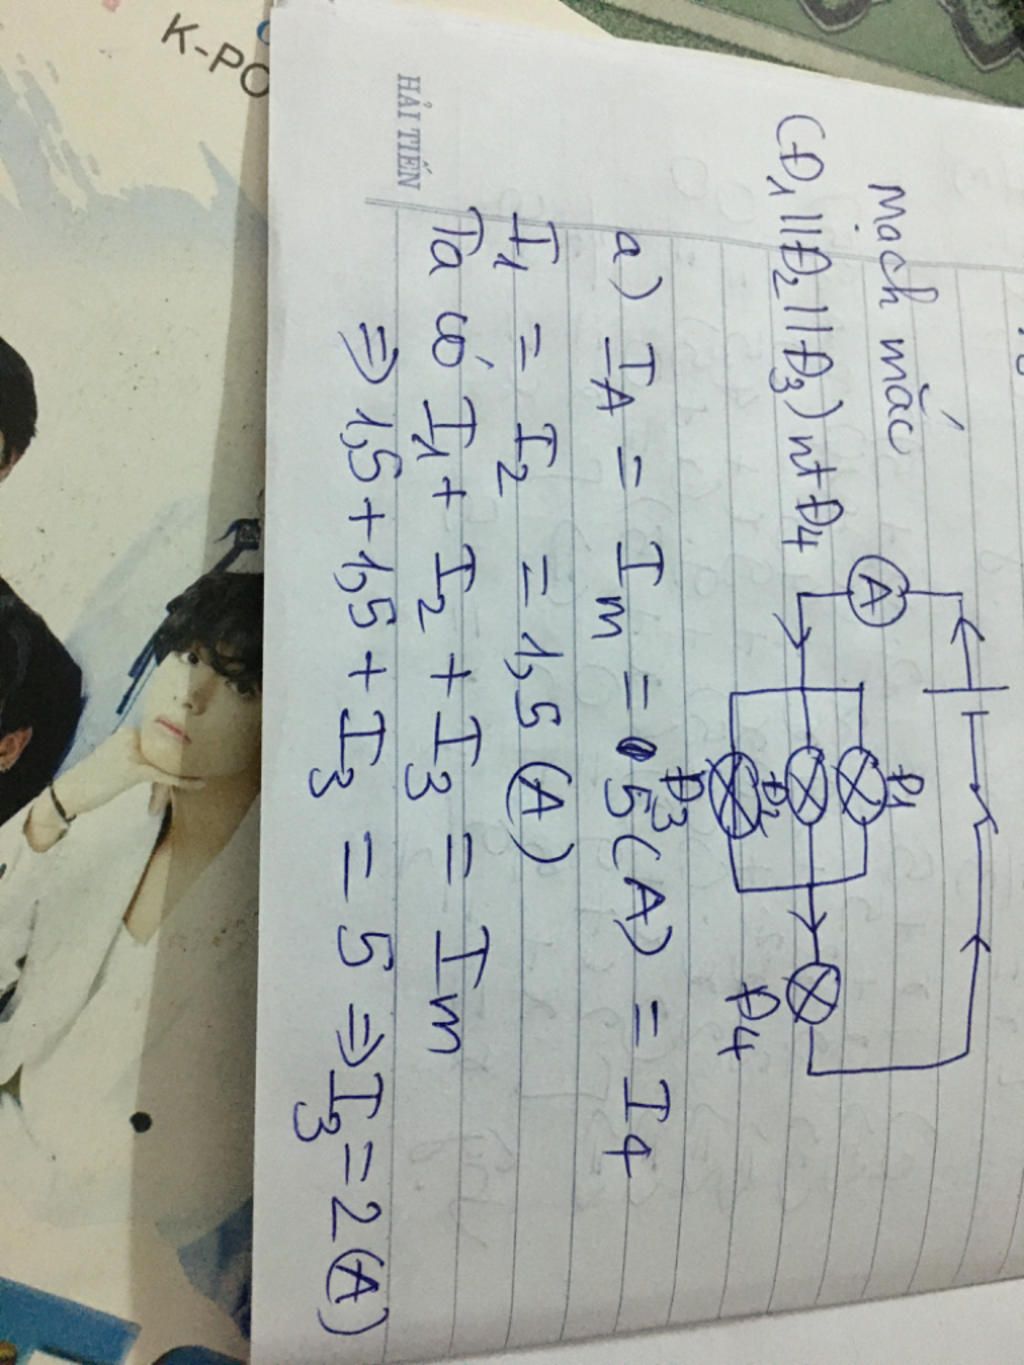 K-PO
HẢI TIẾN
Mạch mắc
(Đ1 || Đ2 || Đ3) nt Đ4
A
Đ1
Đ2
Đ3
Đ4
a) IA = Im = 5(A) = I4
I1 = I2 = 1,5 (A)
Ta có I1 + I2 + I3 = Im
⇒ 1,5 + 1,5 + I3 = 5 ⇒ I3 = 2(A)